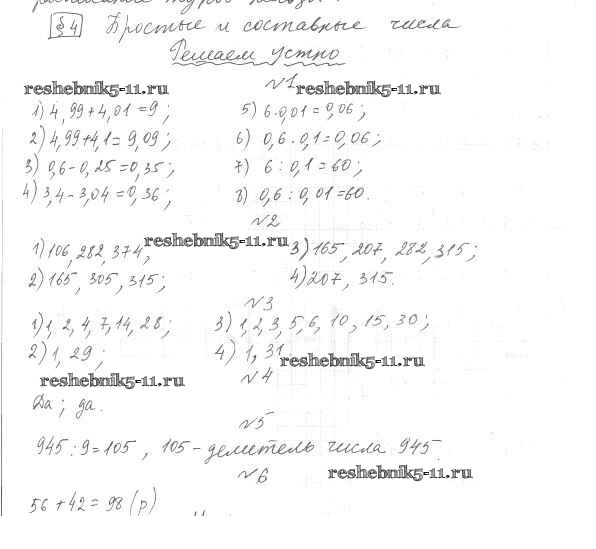 §4 Простые и составные числа
Решаем устно
№1
reshebnik5-11.ru reshebnik5-11.ru
1) 4,99+4,01=9; 5) 6·0,01=0,06;
2) 4,99+4,1=9,09; 6) 0,6·0,1=0,06;
3) 0,6-0,25=0,35; 7) 6:0,1=60;
4) 3,4-3,04=0,36; 8) 0,6:0,01=60.
№2
reshebnik5-11.ru
1) 106, 282, 374, 3) 165, 207, 282, 315;
2) 165, 305, 315; 4) 207, 315.
№3
1) 1, 2, 4, 7, 14, 28; 3) 1, 2, 3, 5, 6, 10, 15, 30;
2) 1, 29; 4) 1, 31.
reshebnik5-11.ru
reshebnik5-11.ru №4
Да; да.
№5
945:9=105, 105-делитель числа 945.
№6 reshebnik5-11.ru
56+42=98 (р)